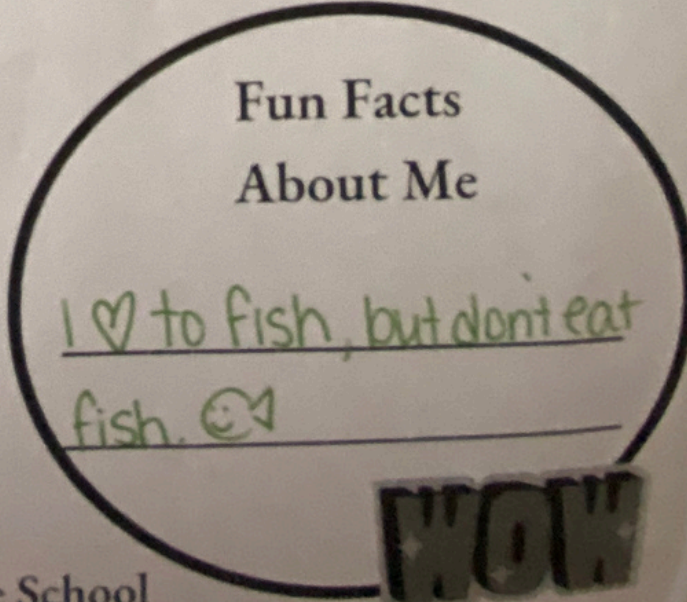 Fun Facts
About Me
I ♡ to fish, but don't eat
fish.
WOW
School